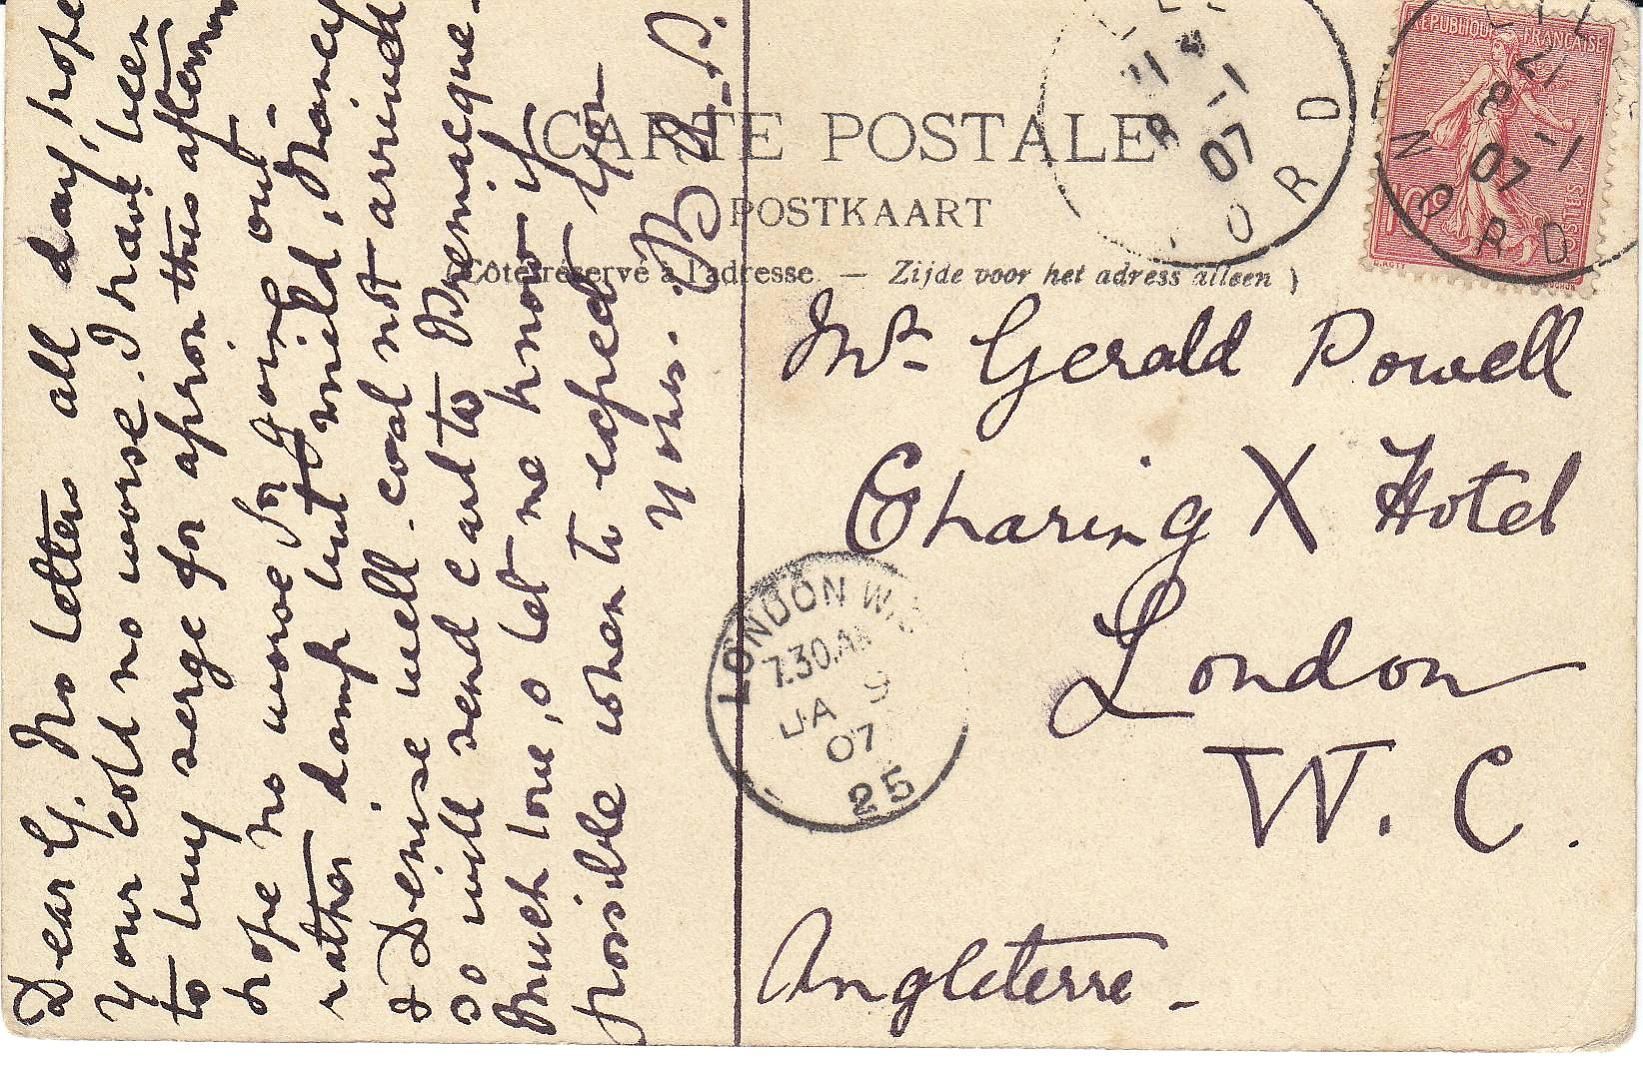 CARTE POSTALE
POSTKAART
(Côté réservé à l'adresse — Zijde voor het adress alleen)
REPUBLIQUE FRANÇAISE
POSTES
10
21
8 - 1
07
NORD
21
8 - 1
07
ORD
Dear G. No letters all day, hope
your cold no worse. I have been
to buy serge for apron this afternoon
hope no worse for going out -
rather damp but mild, Nancy
& Denise well. coal not arrived
so will send card to
Much love, & let me know if
possible when to expect you
Yours. B. M-P.
Mr. Gerald Powell
Charing X Hotel
London
W. C.
Angleterre -
LONDON W.
7.30.AM
JA 9
07
25